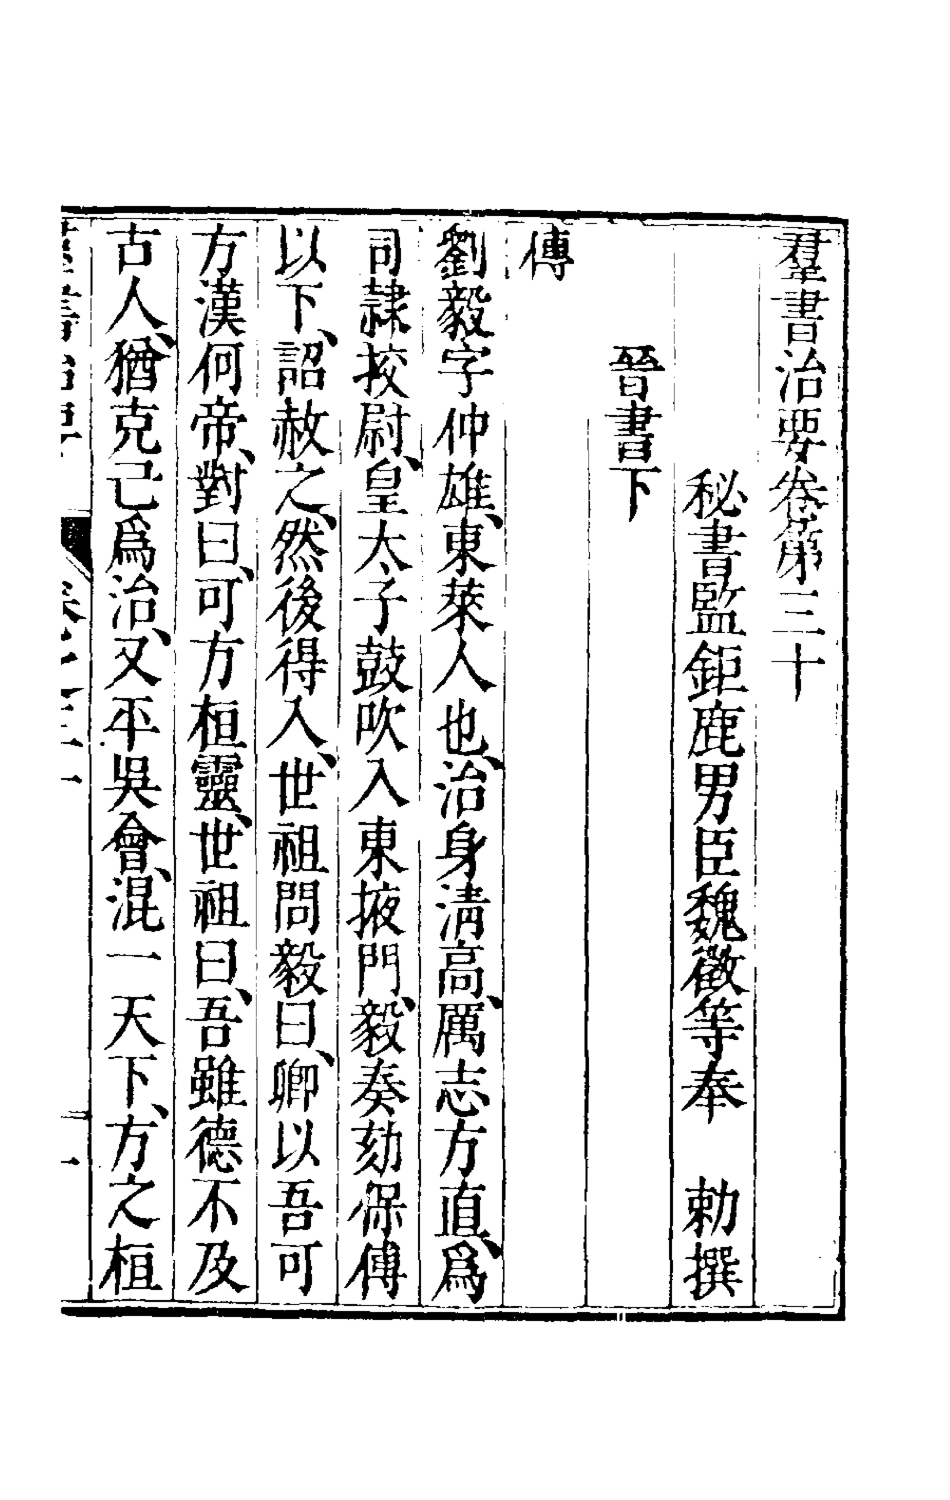 羣書治要卷第三十
秘書監鉅鹿男臣魏徵等奉　勅撰
晉書下
傳
劉毅字仲雄、東萊人也、治身清高、厲志方直、爲
司隷挍尉、皇太子鼓吹入東掖門、毅奏劾保傅
以下、詔赦之、然後得入、世祖問毅曰、卿以吾可
方漢何帝、對曰、可方桓靈、世祖曰、吾雖德不及
古人、猶克己爲治、又平吳會、混一天下、方之桓